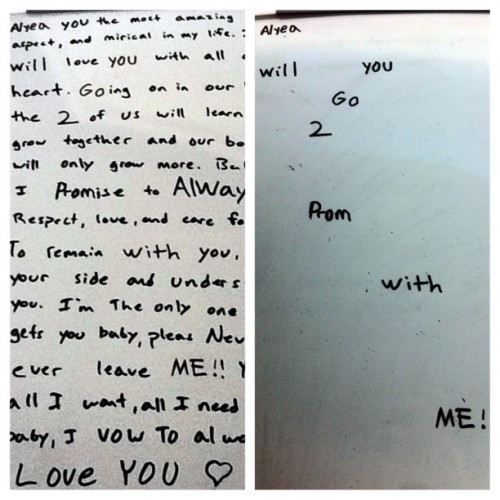 Alyea you the most amazing
aspect, and mirical in my life.
will love you with all
heart. Going on in our
the 2 of us will learn
grow together and our bo
will only grow more. Be
I Promise to Alway
Respect, love, and care fo
To remain with you,
your side and unders
you. I'm The only one
gets you baby, pleas Nev
ever leave ME!! Y
all I want, all I need
baby, I vow To alwa
Love YOU ♡
Alyea
will you
Go
2
Prom
with
ME!